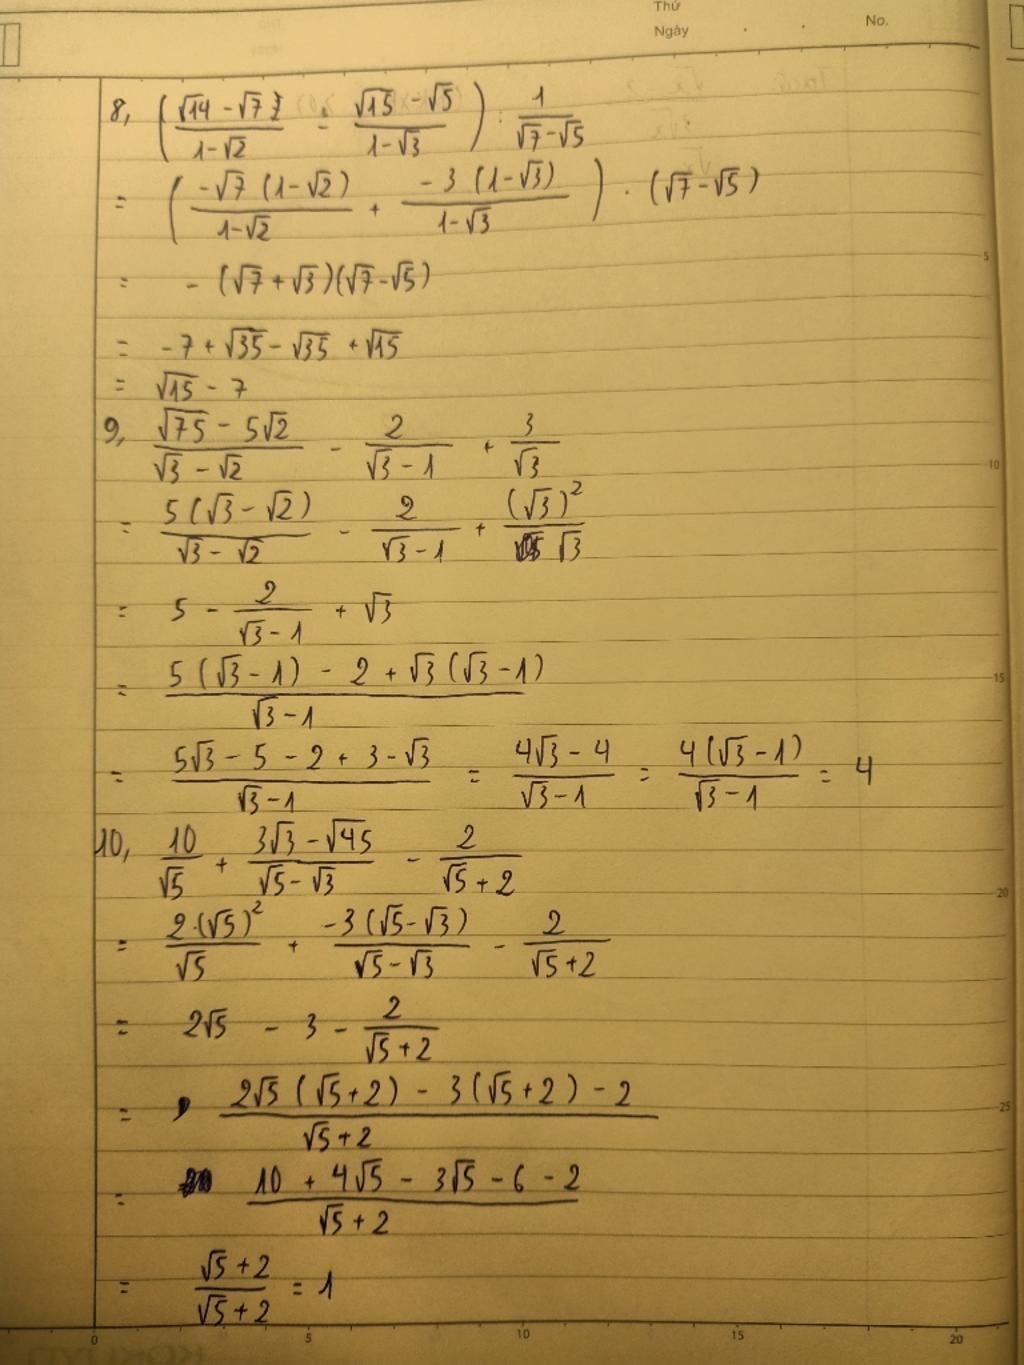 Thứ
Ngày . . No.
8, ( (√14 - √7) / (1 - √2) - (√15 - √5) / (1 - √3) ) : 1 / (√7 - √5)
= ( -√7 (1 - √2) / (1 - √2) + -3 (1 - √3) / (1 - √3) ) . (√7 - √5)
= - (√7 + √3)(√7 - √5)
= -7 + √35 - √35 + √15
= √15 - 7
9, (√75 - 5√2) / (√3 - √2) - 2 / (√3 - 1) + 3 / √3
= 5 (√3 - √2) / (√3 - √2) - 2 / (√3 - 1) + (√3)² / √3
= 5 - 2 / (√3 - 1) + √3
= (5 (√3 - 1) - 2 + √3 (√3 - 1)) / (√3 - 1)
= (5√3 - 5 - 2 + 3 - √3) / (√3 - 1) = (4√3 - 4) / (√3 - 1) = 4 (√3 - 1) / (√3 - 1) = 4
10, 10 / √5 + (3√3 - √45) / (√5 - √3) - 2 / (√5 + 2)
= 2.(√5)² / √5 + -3 (√5 - √3) / (√5 - √3) - 2 / (√5 + 2)
= 2√5 - 3 - 2 / (√5 + 2)
= (2√5 (√5 + 2) - 3 (√5 + 2) - 2) / (√5 + 2)
= (10 + 4√5 - 3√5 - 6 - 2) / (√5 + 2)
= (√5 + 2) / (√5 + 2) = 1
5
10
15
20
25
0 5 10 15 20